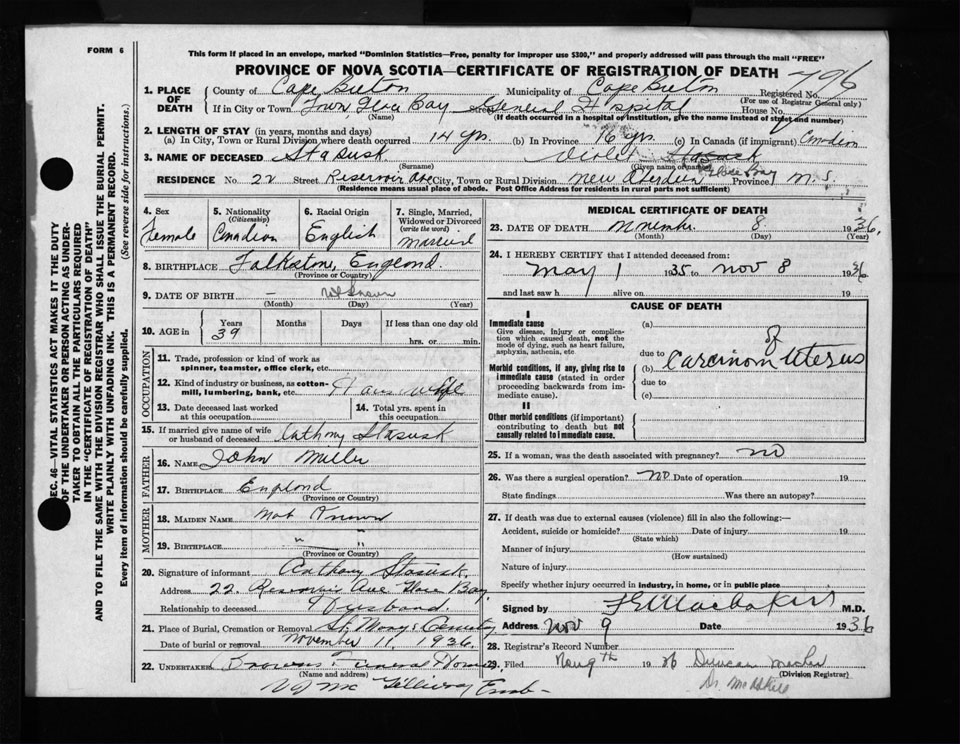 FORM 6
This form if placed in an envelope, marked "Dominion Statistics—Free, penalty for improper use $300," and properly addressed will pass through the mail "FREE"
PROVINCE OF NOVA SCOTIA—CERTIFICATE OF REGISTRATION OF DEATH
796
Registered No.
(For use of Registrar General only)
1. PLACE OF DEATH
County of Cape Breton Municipality of Cape Breton
If in City or Town Town, Glace Bay Street General Hospital House No.
(Name) (If death occurred in a hospital or institution, give the name instead of street and number)
2. LENGTH OF STAY (in years, months and days)
(a) In City, Town or Rural Division where death occurred 14 yrs. (b) In Province 16 yrs. (c) In Canada (if immigrant) Canadian
3. NAME OF DECEASED Stasusk Violet
(Surname) (Given name or names)
RESIDENCE No. 22 Street Reservoir Ave City, Town or Rural Division New Aberdeen Glace Bay Province N.S.
(Residence means usual place of abode. Post Office Address for residents in rural parts not sufficient)
4. Sex
Female
5. Nationality
(Citizenship)
Canadian
6. Racial Origin
English
7. Single, Married, Widowed or Divorced
(write the word)
Married
8. BIRTHPLACE Falkston, England.
(Province or Country)
9. DATE OF BIRTH – Not Known
(Month) (Day) (Year)
10. AGE in
Years Months Days If less than one day old
39 hrs. or min.
OCCUPATION
11. Trade, profession or kind of work as spinner, teamster, office clerk, etc.
12. Kind of industry or business, as cotton-mill, lumbering, bank, etc. Housewife
13. Date deceased last worked at this occupation
14. Total yrs. spent in this occupation
15. If married give name of wife or husband of deceased Anthony Stasusk
FATHER
16. NAME John Miller
17. BIRTHPLACE England
(Province or Country)
MOTHER
18. MAIDEN NAME Not Known
19. BIRTHPLACE " "
(Province or Country)
20. Signature of informant Anthony Stasusk.
Address 22 Reservoir Ave Glace Bay
Relationship to deceased Husband.
21. Place of Burial, Cremation or Removal St. Marys Cemetery
Date of burial or removal November 11, 1936.
22. UNDERTAKER Browns Funeral Home
MEDICAL CERTIFICATE OF DEATH
23. DATE OF DEATH November 8 1936.
(Month) (Day) (Year)
24. I HEREBY CERTIFY that I attended deceased from:
May 1 1935 to Nov 8 1936
and last saw h alive on 19
CAUSE OF DEATH
I
Immediate cause
Give disease, injury or complication which caused death, not the mode of dying, such as heart failure, asphyxia, asthenia, etc
Morbid conditions, if any, giving rise to immediate cause (stated in order proceeding backwards from immediate cause).
II
Other morbid conditions (if important) contributing to death but not causally related to immediate cause.
(a)
due to
(b) Carcinom of Uterus
due to
(c)
25. If a woman, was the death associated with pregnancy? no
26. Was there a surgical operation? no Date of operation 19
State findings Was there an autopsy?
27. If death was due to external causes (violence) fill in also the following:—
Accident, suicide or homicide? Date of injury 19
(State which)
Manner of injury
(How sustained)
Nature of injury
Specify whether injury occurred in industry, in home, or in public place
Signed by M.D.
Address Nov 9 Date 1936
28. Registrar's Record Number
29. Filed Nov 9th 1936 Duncan
(Division Registrar)
SEC. 46—VITAL STATISTICS ACT MAKES IT THE DUTY
OF THE UNDERTAKER OR PERSON ACTING AS UNDER-
TAKER TO OBTAIN ALL THE PARTICULARS REQUIRED
IN THE "CERTIFICATE OF REGISTRATION OF DEATH"
AND TO FILE THE SAME WITH THE DIVISION REGISTRAR WHO SHALL ISSUE THE BURIAL PERMIT.
WRITE PLAINLY WITH UNFADING INK. THIS IS A PERMANENT RECORD.
Every item of information should be carefully supplied. (See reverse side for instructions.)